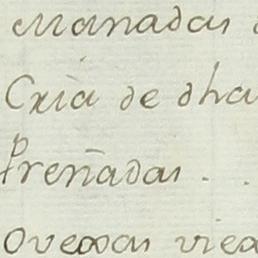 Manadas
Cria de dha
Preñadas . .
Ovexas viex